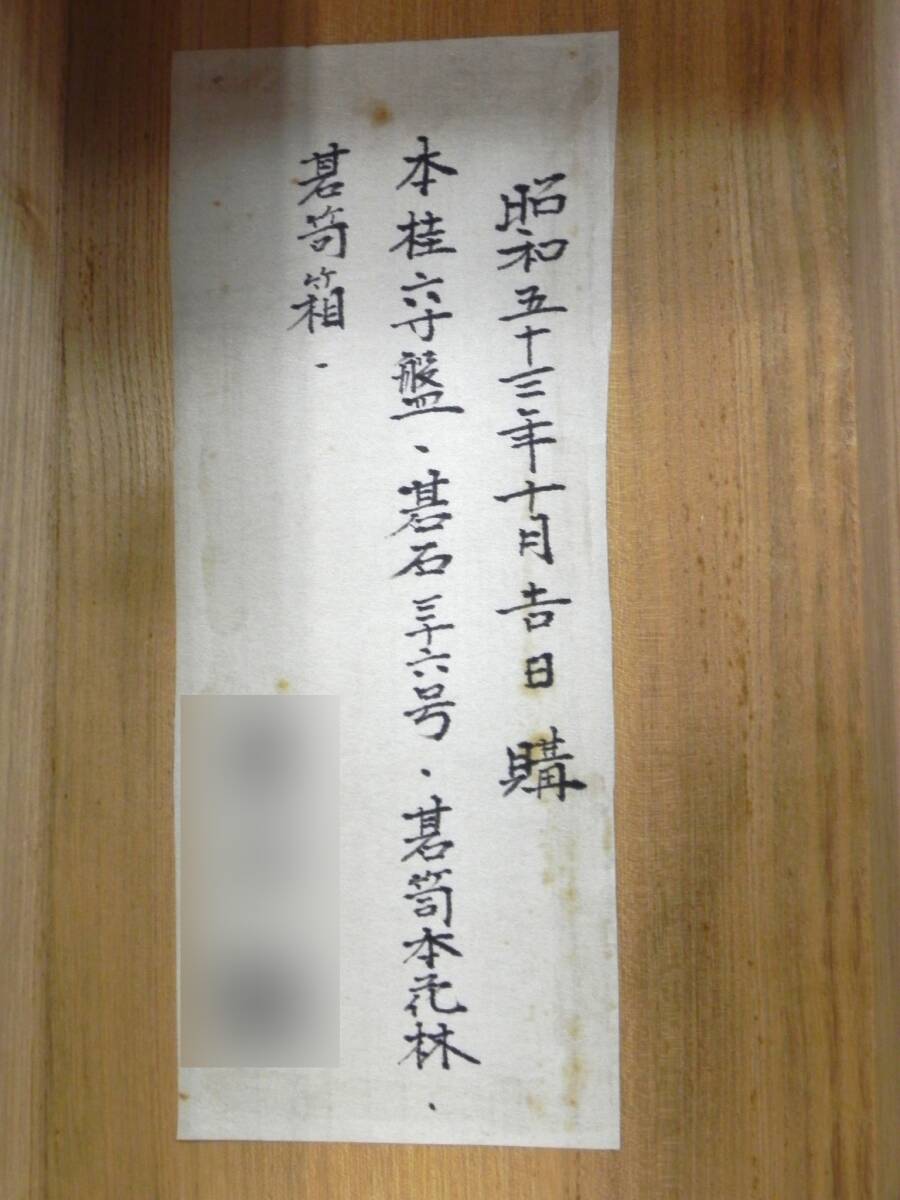 昭和五十三年十月吉日 購
本桂六寸盤、碁石三十六号、碁笥本花林、
碁笥箱、